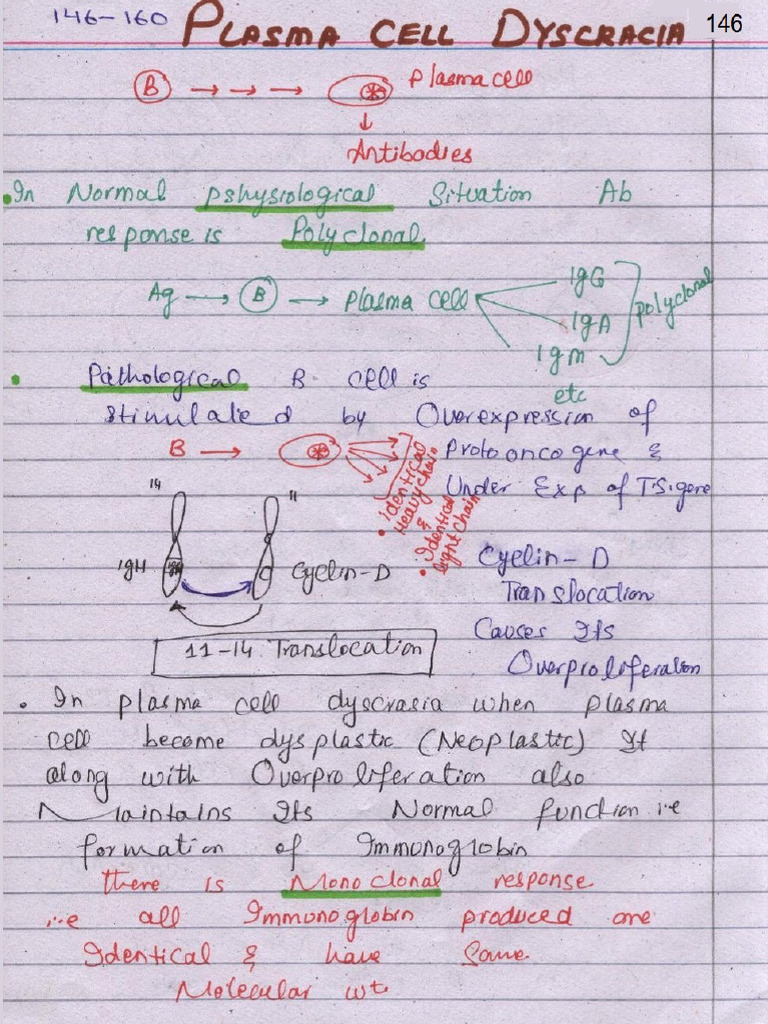 146-160 PLASMA CELL DYSCRACIA 146
B → → → Plasma cell
↓
Antibodies
• In Normal pshysiological Situation Ab
response is Polyclonal.
Ag → B → Plasma cell
IgG
IgA
IgM
etc
polyclonal
• Pathological B cell is
Stimulated by Overexpression of
Protooncogene &
Under Exp of T.S.gene
B →
• Identical
Heavy chain
&
• Identical
light chain
14 11
IgH Cyclin-D
11-14 Translocation
Cyclin-D
Translocation
Causes Its
Overproliferation
• In plasma cell dyscrasia when plasma
cell become dysplastic (Neoplastic) It
along with Overproliferation also
Maintains Its Normal function i.e
formation of Immunoglobin
there is Monoclonal response
i.e all Immunoglobin produced are
Identical & have Same
Molecular wt.